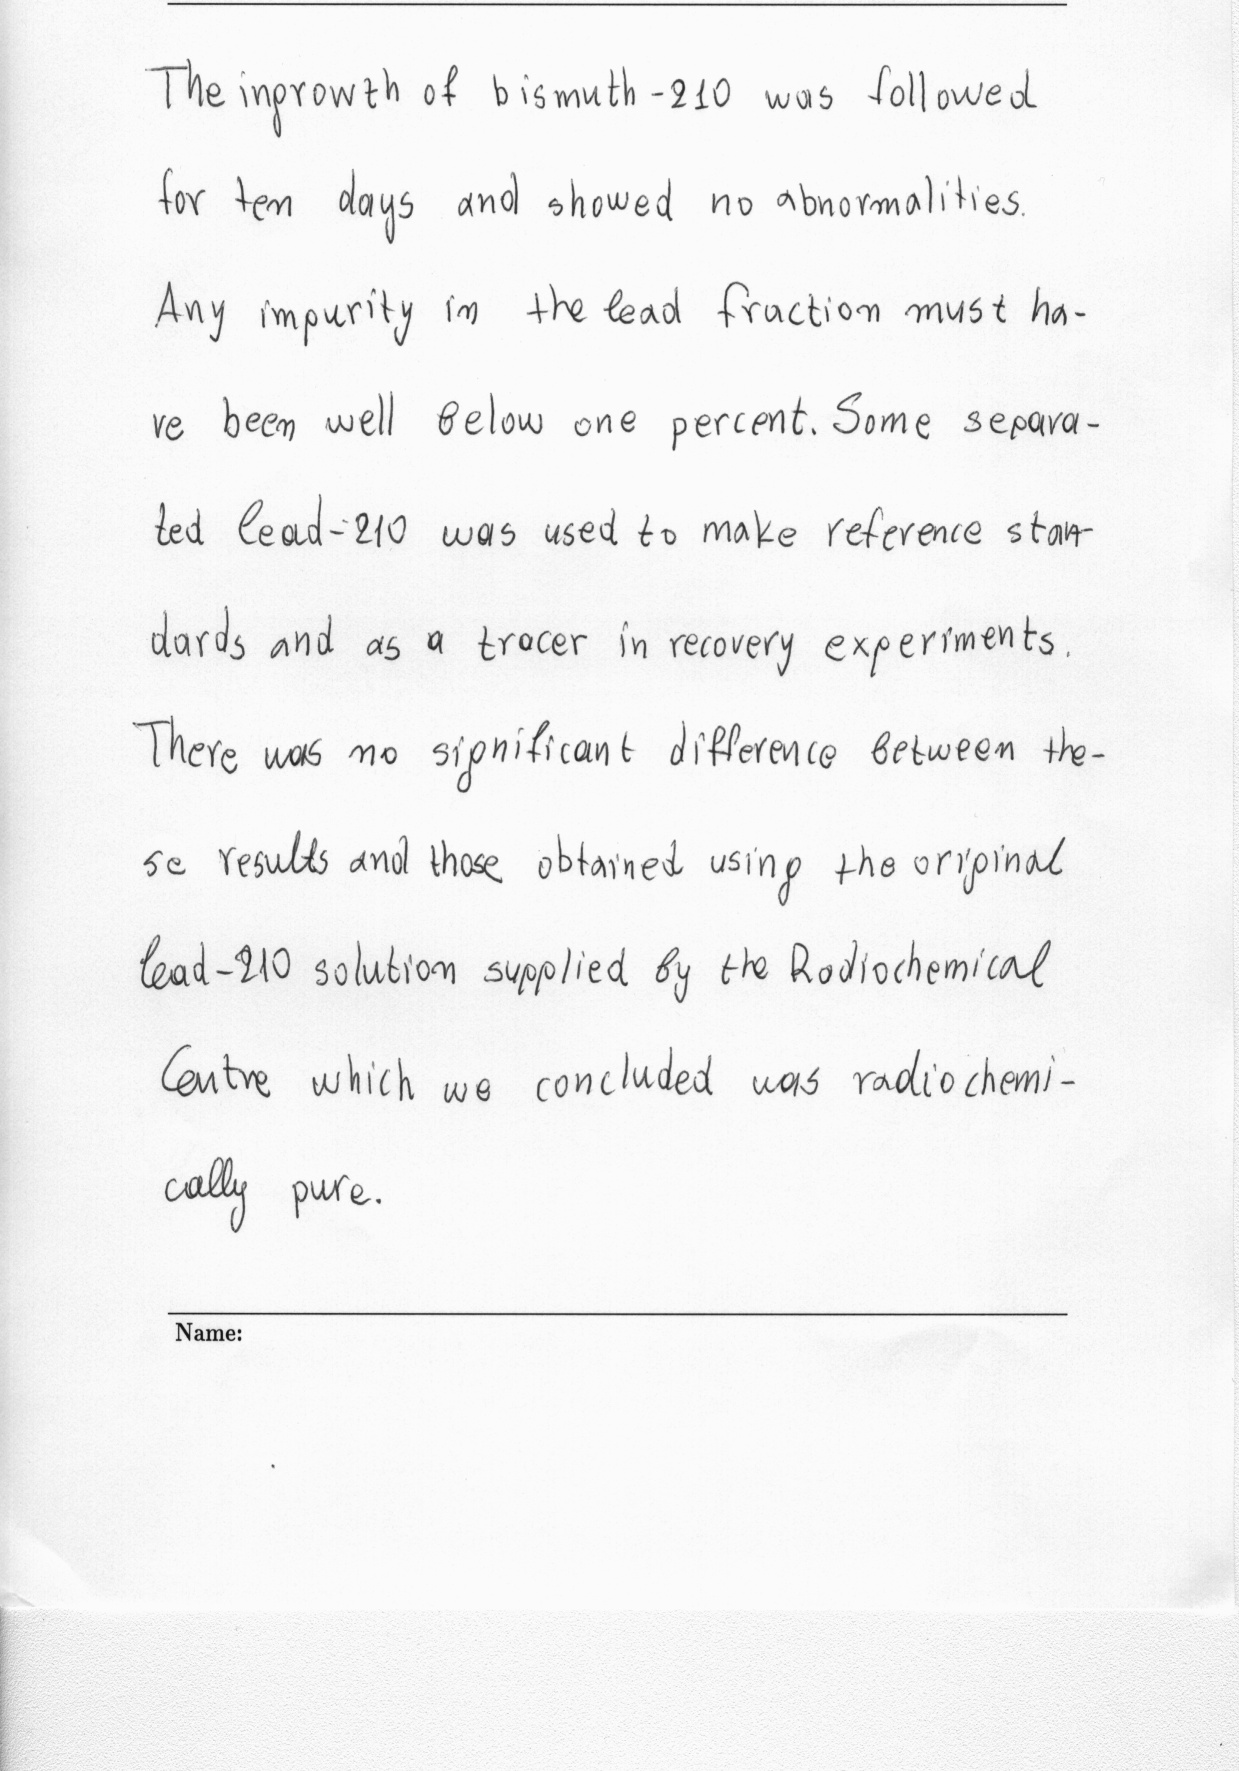 The ingrowth of bismuth-210 was followed
for ten days and showed no abnormalities.
Any impurity in the lead fraction must ha-
ve been well below one percent. Some separa-
ted lead-210 was used to make reference stan-
dards and as a tracer in recovery experiments.
There was no significant difference between the-
se results and those obtained using the original
lead-210 solution supplied by the Radiochemical
Centre which we concluded was radiochemi-
cally pure.
Name: